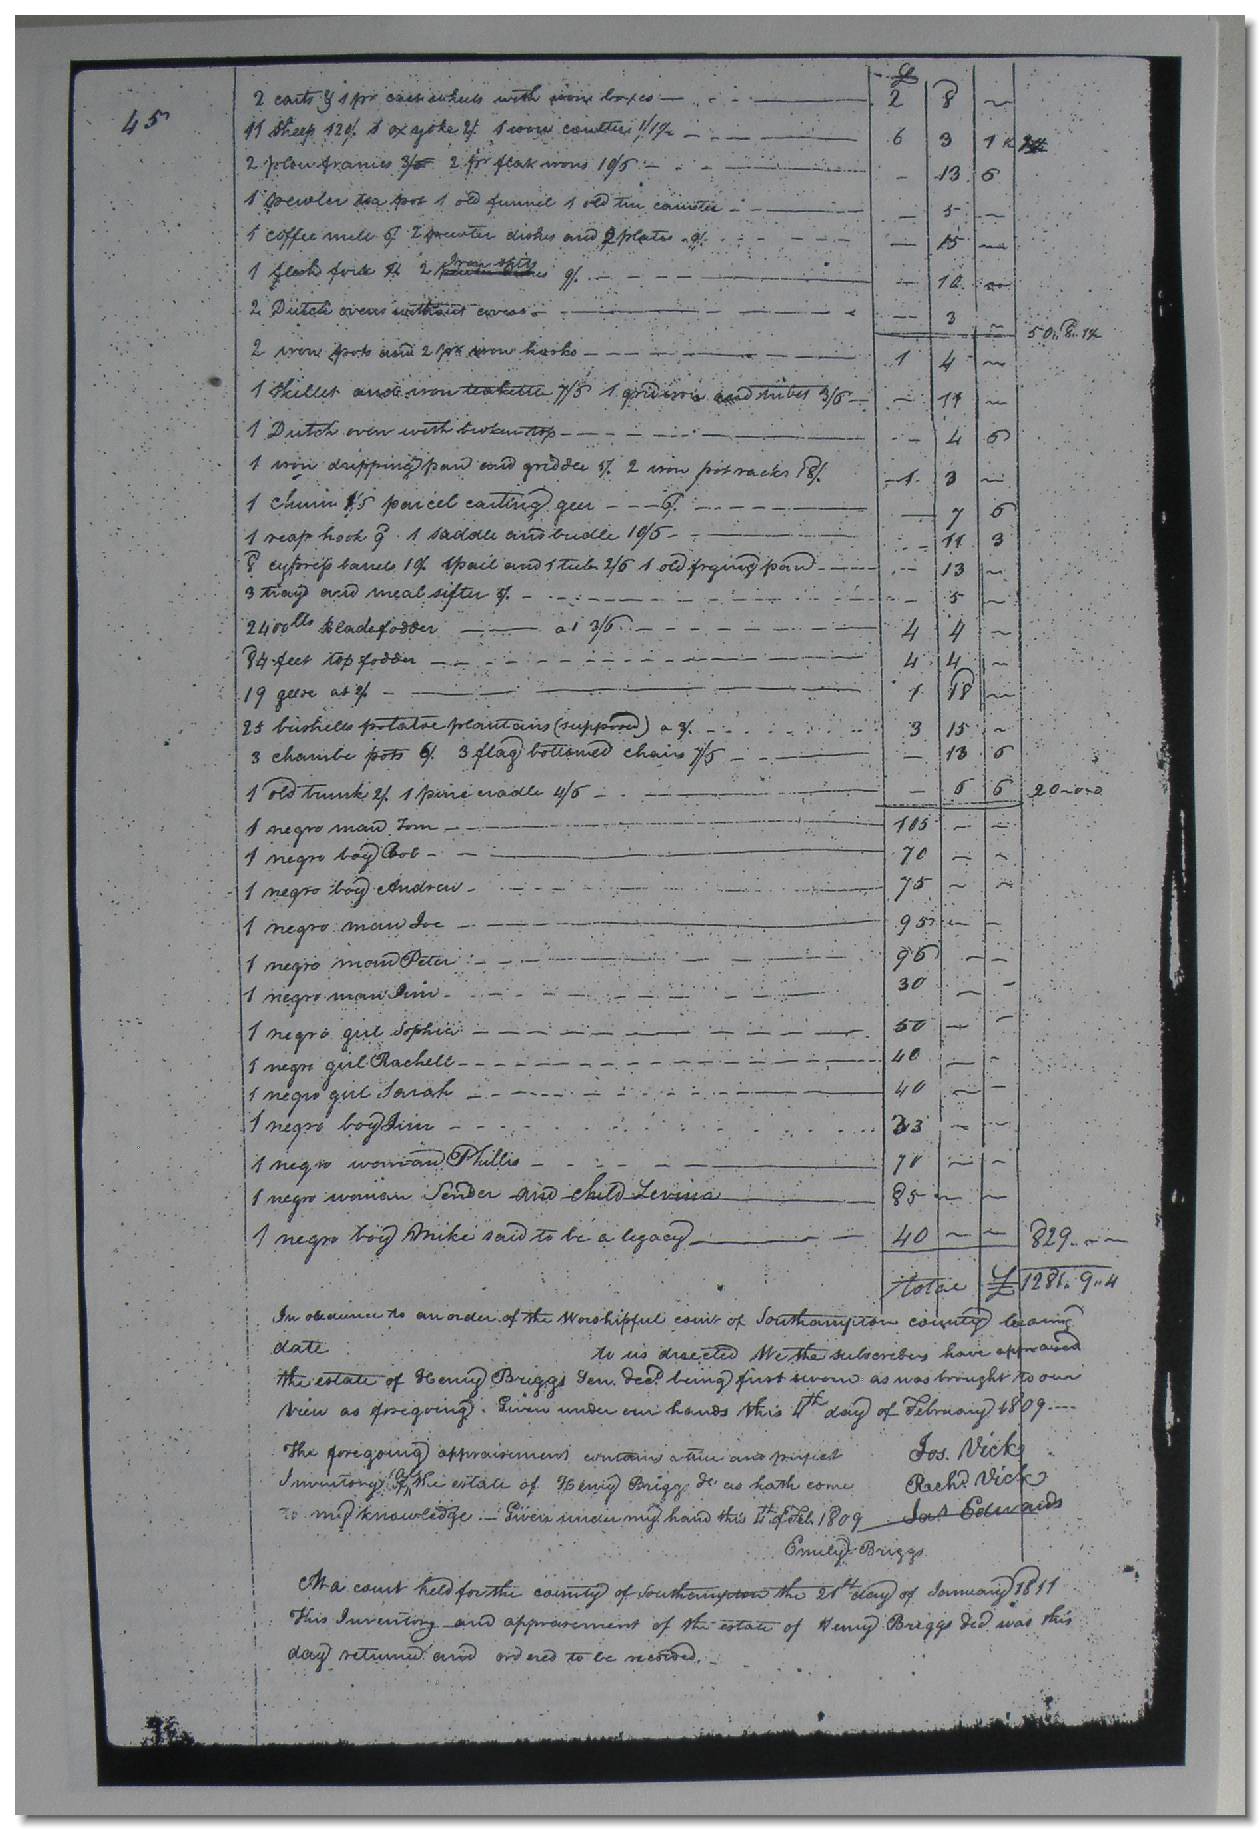 45
£
2 carts & 1 pr cart wheels with iron boxes 2 8 —
11 Sheep 120/ 1 ox yoke 2/ 1 iron coulter 1/1½ 6 3 1½
2 plow frames 3/ 2 pr flax irons 10/6 — 13 6
1 pewter tea pot 1 old funnel 1 old tin canister — 5 —
1 coffee mill 6/ 2 pewter dishes and 2 plates 9/ — 15 —
1 flesh fork 2 Iron spits 9/ — 10 —
2 Dutch ovens without covers — 3 — 50 8 1½
2 iron pots and 2 pr iron hooks 1 4 —
1 Skillet and iron teakettle 7/6 1 gridiron and tribet 3/6 — 11 —
1 Dutch oven with broken top — 4 6
1 iron dripping pan and griddle 5/ 2 iron potracks 18/ 1 3 —
1 churn 1/5 parcel carting geer 6/ — 7 6
1 reap hook 9 1 saddle and bridle 10/6 — 11 3
8 cypress barrels 10/ 1 pail and 1 tub 2/6 1 old frying pan — 13 —
3 trays and meal sifter 5/ — 5 —
2400 lbs blade fodder at 3/6 4 4 —
84 feet top fodder 4 4 —
19 geese at 2/ 1 18 —
25 bushells potatoe plantains (supposed) a 3/ 3 15 —
3 chambe pots 6/ 3 flag bottomed chairs 7/6 — 13 6
1 old trunk 2/ 1 pine cradle 4/6 — 6 6 20-0-0
1 negro man Tom 105 — —
1 negro boy Bob 70 — —
1 negro boy Andrew 75 — —
1 negro man Joe 95 — —
1 negro man Peter 96 — —
1 negro man Jim 30 — —
1 negro girl Sophia 50 — —
1 negro girl Rachell 40 — —
1 negro girl Sarah 40 — —
1 negro boy Jim 33 — —
1 negro woman Phillis 70 — —
1 negro woman Sender and child Levinia 85 — —
1 negro boy Mike said to be a legacy 40 — — 829 — —
total £ 1281. 9. 4
In obedience to an order of the Worshipful court of Southampton county bearing
date to us directed We the subscribers have appraised
the estate of Henry Briggs Sen. decd. being first sworn as was brought to our
view as foregoing. Given under our hands this 4th day of February 1809
The foregoing appraisement contains a true and perfect Jos. Vick
Inventory of the estate of Henry Briggs dc as hath come Richd. Vick
to my knowledge. — Given under my hand this 4th of Feb. 1809 Jas Edwards
Emily Briggs
At a court held for the county of Southampton the 21st day of January 1811
This Inventory and appraisement of the estate of Henry Briggs decd was this
day returned and ordered to be recorded.